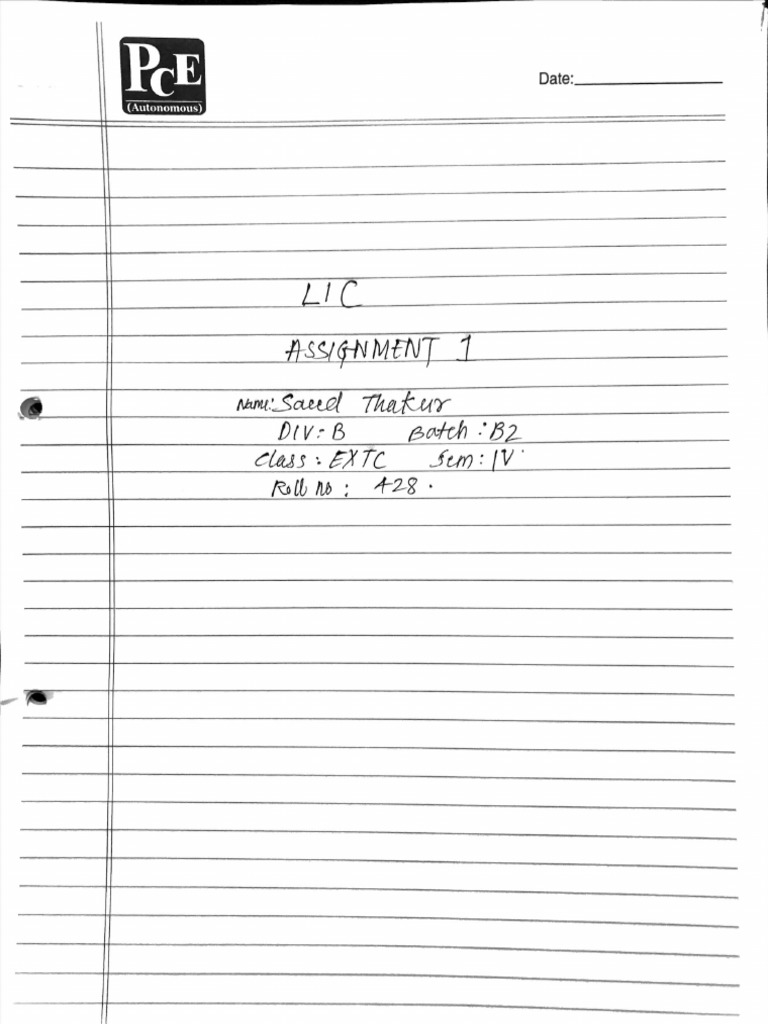 PCE
(Autonomous)
Date:
LIC
ASSIGNMENT 1
Name: Saeed Thakur
DIV: B Batch: B2
Class: EXTC Sem: IV
Roll no: 428.